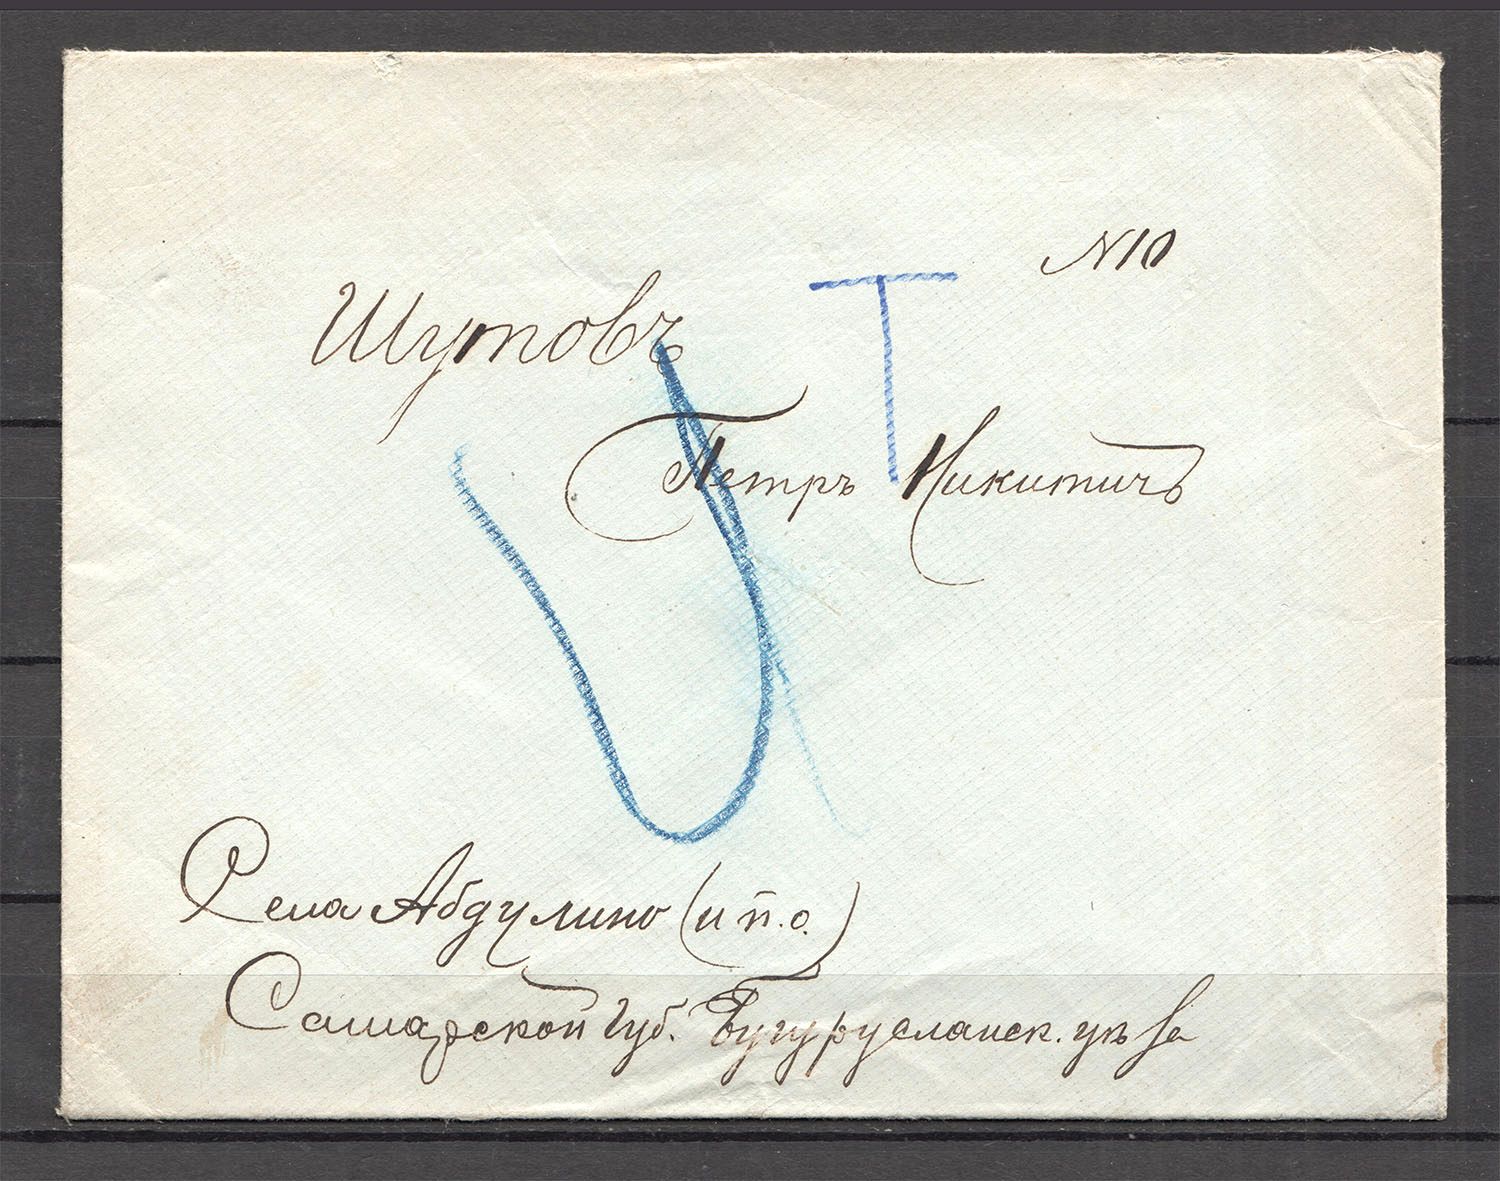 N10
Т
Шутовъ
Петръ Никитичъ
Села Абдулино (и п.о.)
Самарской Губ. Бугурусланск. уѣзда